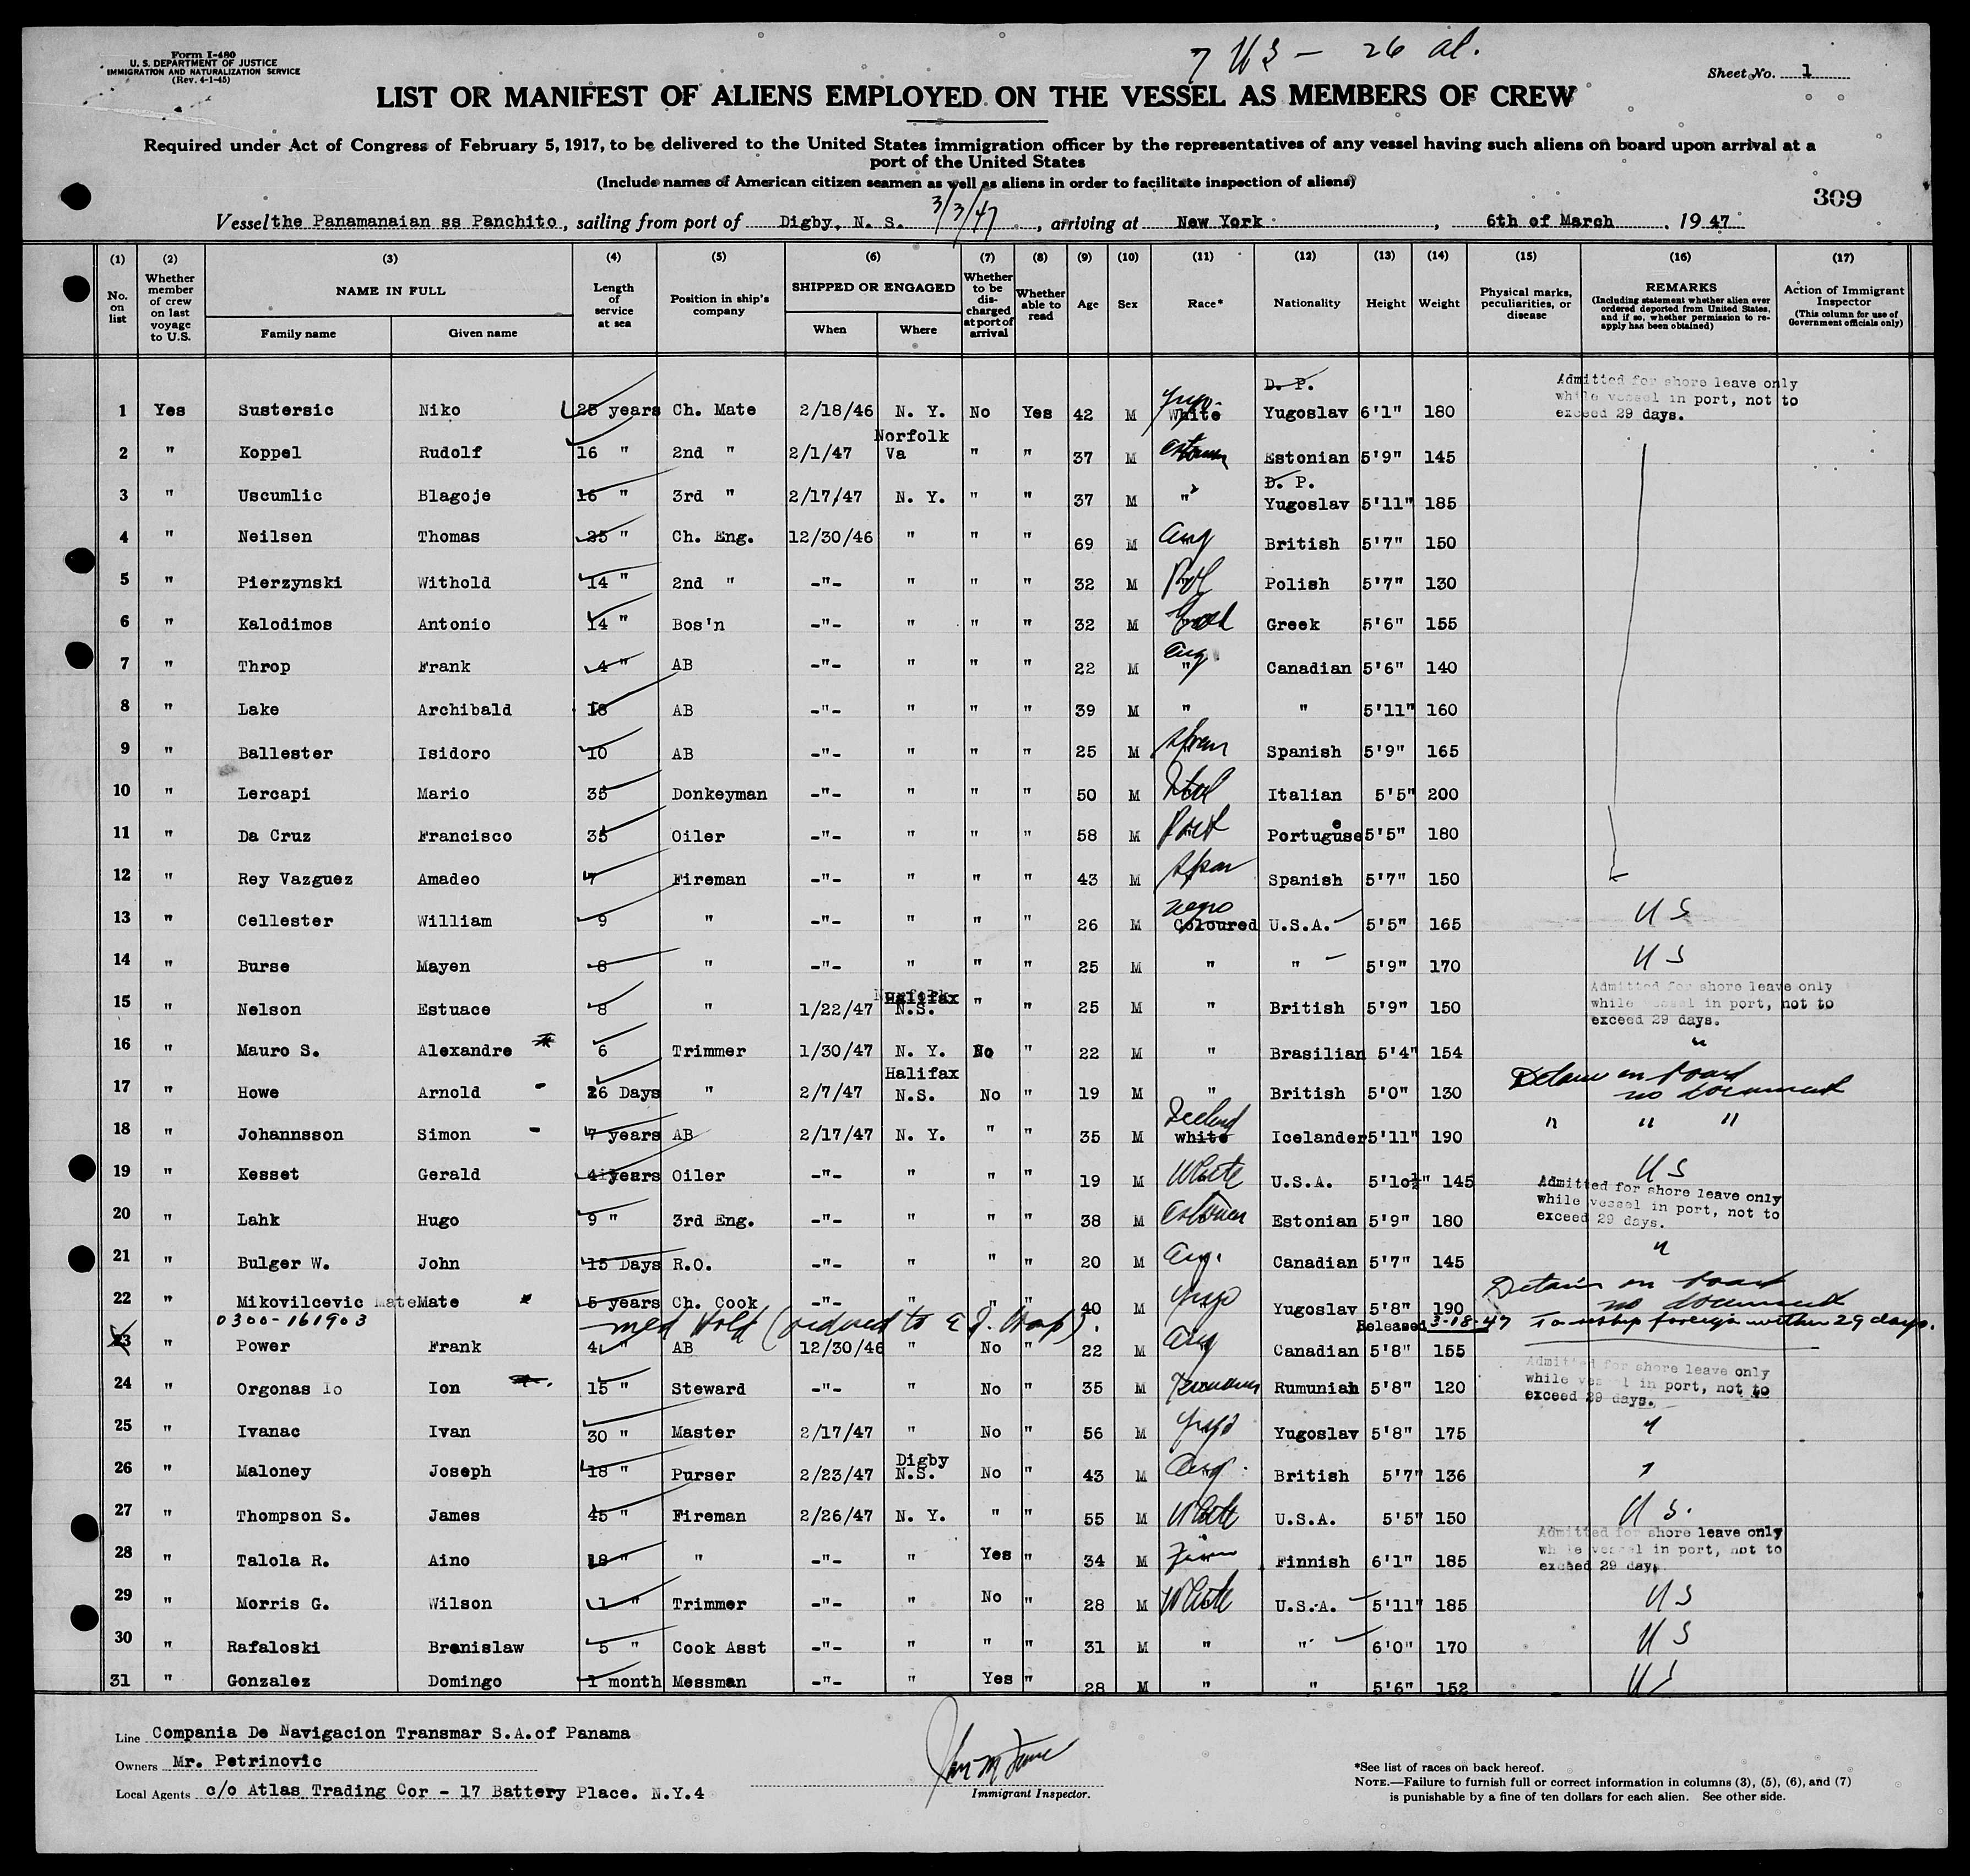 Form I-480
U. S. DEPARTMENT OF JUSTICE
IMMIGRATION AND NATURALIZATION SERVICE
(Rev. 4-1-45)
7 US — 26 al.
Sheet No. 1
LIST OR MANIFEST OF ALIENS EMPLOYED ON THE VESSEL AS MEMBERS OF CREW
Required under Act of Congress of February 5, 1917, to be delivered to the United States immigration officer by the representatives of any vessel having such aliens on board upon arrival at a
port of the United States
(Include names of American citizen seamen as well as aliens in order to facilitate inspection of aliens)
309
Vessel the Panamanaian ss Panchito, sailing from port of Digby, N. S. 3/3/47, arriving at New York, 6th of March, 1947
(1) (2) (3) (4) (5) (6) (7) (8) (9) (10) (11) (12) (13) (14) (15) (16) (17)
No. on list
Whether member of crew on last voyage to U.S.
NAME IN FULL
Family name
Given name
Length of service at sea
Position in ship's company
SHIPPED OR ENGAGED
When
Where
Whether to be discharged at port of arrival
Whether able to read
Age
Sex
Race*
Nationality
Height
Weight
Physical marks, peculiarities, or disease
REMARKS
(Including statement whether alien ever ordered deported from United States, and if so, whether permission to reapply has been obtained)
Action of Immigrant Inspector
(This column for use of Government officials only)
1 Yes Sustersic Niko 25 years Ch. Mate 2/18/46 N. Y. No Yes 42 M Yugo. White D. P. Yugoslav 6'1" 180 Admitted for shore leave only while vessel in port, not to exceed 29 days.
2 " Koppel Rudolf 16 " 2nd " 2/1/47 Norfolk Va " " 37 M Estonian Estonian 5'9" 145
3 " Uscumlic Blagoje 16 " 3rd " 2/17/47 N. Y. " " 37 M " D. P. Yugoslav 5'11" 185
4 " Neilsen Thomas 25 " Ch. Eng. 12/30/46 " " " 69 M Eng British 5'7" 150
5 " Pierzynski Withold 14 " 2nd " -"- " " " 32 M Pol Polish 5'7" 130
6 " Kalodimos Antonio 14 " Bos'n -"- " " " 32 M Greek Greek 5'6" 155
7 " Throp Frank 4 " AB -"- " " " 22 M Eng. " Canadian 5'6" 140
8 " Lake Archibald 18 AB -"- " " " 39 M " " 5'11" 160
9 " Ballester Isidoro 10 AB -"- " " " 25 M Span Spanish 5'9" 165
10 " Lercapi Mario 35 Donkeyman -"- " " " 50 M Ital Italian 5'5" 200
11 " Da Cruz Francisco 35 Oiler -"- " " " 58 M Port Portuguese 5'5" 180
12 " Rey Vazguez Amadeo 7 Fireman -"- " " " 43 M Span Spanish 5'7" 150
13 " Cellester William 9 " -"- " " " 26 M negro Coloured U.S.A. 5'5" 165 US
14 " Burse Mayen 8 " -"- " " " 25 M " " 5'9" 170 US
15 " Nelson Estuace 8 " 1/22/47 Halifax N.S. " " 25 M " British 5'9" 150 Admitted for shore leave only while vessel in port, not to exceed 29 days.
16 " Mauro S. Alexandre 6 Trimmer 1/30/47 N. Y. No " 22 M " Brasilian 5'4" 154 "
17 " Howe Arnold - 26 Days " 2/7/47 Halifax N.S. No " 19 M " British 5'0" 130 Detain on board no document
18 " Johannsson Simon - 7 years AB 2/17/47 N. Y. " " 35 M Iceland white Icelander 5'11" 190 " " "
19 " Kesset Gerald 4 years Oiler -"- " " " 19 M White U.S.A. 5'10½" 145 US
20 " Lahk Hugo 9 " 3rd Eng. -"- " " " 38 M Estonian Estonian 5'9" 180 Admitted for shore leave only while vessel in port, not to exceed 29 days.
21 " Bulger W. John 15 Days R.O. -"- " " " 20 M Eng. Canadian 5'7" 145 "
22 " Mikovilcevic Mate Mate 5 years Ch. Cook -"- " " " 40 M Yugo Yugoslav 5'8" 190 Detain on board no document
0300-161903 med Hold (ordered to E. I. Hosp). Released 3-18-47 To reship foreign within 29 days.
23 " Power Frank 4 " AB 12/30/46 " No " 22 M Eng Canadian 5'8" 155
24 " Orgonas Io Ion 15 " Steward -"- " No " 35 M Rumanian Rumunian 5'8" 120 Admitted for shore leave only while vessel in port, not to exceed 29 days.
25 " Ivanac Ivan 30 " Master 2/17/47 " No " 56 M Yugo Yugoslav 5'8" 175 "
26 " Maloney Joseph 18 " Purser 2/23/47 Digby N.S. No " 43 M Eng. British 5'7" 136 "
27 " Thompson S. James 45 " Fireman 2/26/47 N. Y. " " 55 M White U.S.A. 5'5" 150 U S.
28 " Talola R. Aino 18 " " -"- " Yes " 34 M Finn Finnish 6'1" 185 Admitted for shore leave only while vessel in port, not to exceed 29 days
29 " Morris G. Wilson 1 " Trimmer -"- " No " 28 M White U.S.A. 5'11" 185 US
30 " Rafaloski Bronislaw 5 " Cook Asst -"- " " " 31 M " " 6'0" 170 US
31 " Gonzalez Domingo 1 month Messman -"- " Yes " 28 M " " 5'6" 152 US
Line Compania De Navigacion Transmar S.A. of Panama
Owners Mr. Petrinovic
Local Agents c/o Atlas Trading Cor - 17 Battery Place. N.Y.4
Immigrant Inspector.
*See list of races on back hereof.
NOTE.—Failure to furnish full or correct information in columns (3), (5), (6), and (7)
is punishable by a fine of ten dollars for each alien. See other side.